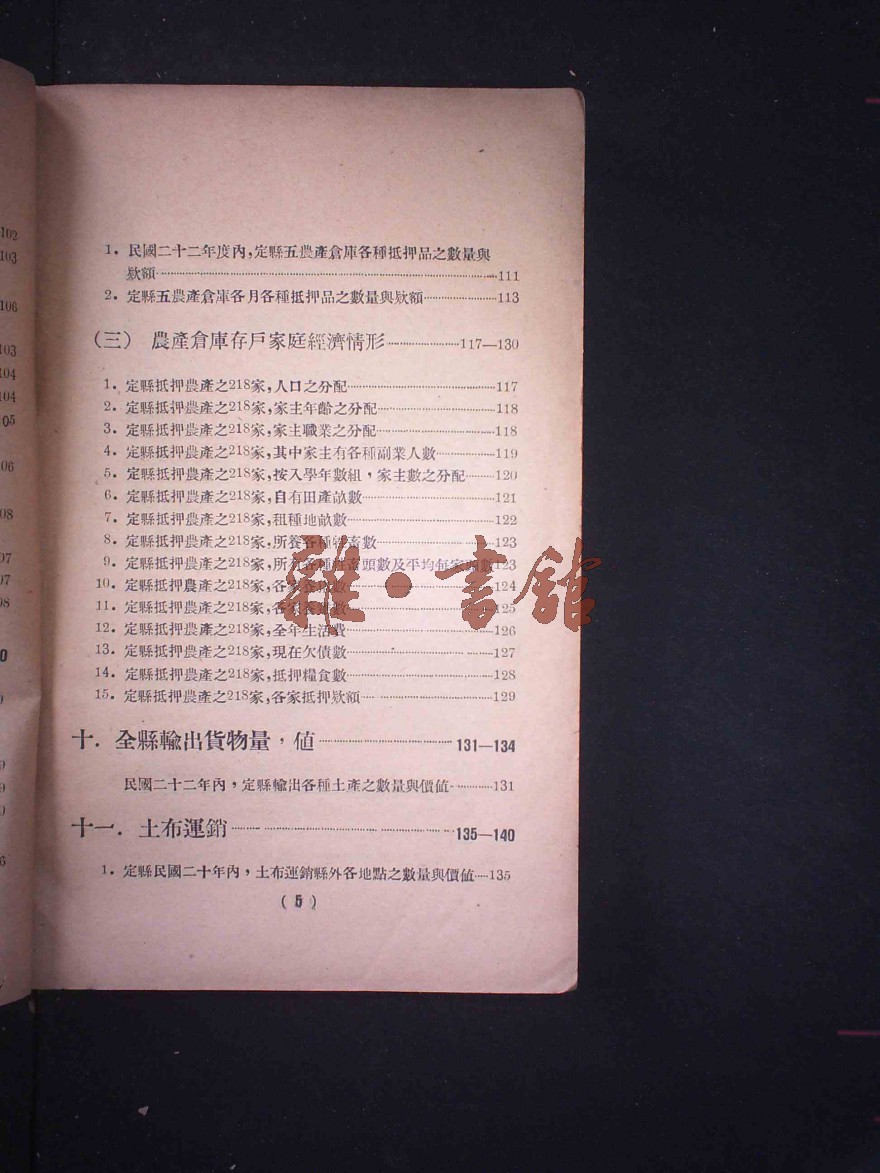 1. 民國二十二年度內，定縣五農產倉庫各種抵押品之數量與
欵額……111
2. 定縣五農產倉庫各月各種抵押品之數量與欵額……113
（三） 農產倉庫存戶家庭經濟情形……117—130
1. 定縣抵押農產之218家，人口之分配……117
2. 定縣抵押農產之218家，家主年齡之分配……118
3. 定縣抵押農產之218家，家主職業之分配……118
4. 定縣抵押農產之218家，其中家主有各種副業人數……119
5. 定縣抵押農產之218家，按入學年數組，家主數之分配……120
6. 定縣抵押農產之218家，自有田產畝數……121
7. 定縣抵押農產之218家，租種地畝數……122
8. 定縣抵押農產之218家，所養各種牲畜數……123
9. 定縣抵押農產之218家，所有各種牲畜頭數及平均每家頭數123
10. 定縣抵押農產之218家，各家養數……124
11. 定縣抵押農產之218家，各家養數……125
12. 定縣抵押農產之218家，全年生活費……126
13. 定縣抵押農產之218家，現在欠債數……127
14. 定縣抵押農產之218家，抵押糧食數……128
15. 定縣抵押農產之218家，各家抵押欵額……129
十. 全縣輸出貨物量，値……131—134
民國二十二年內，定縣輸出各種土產之數量與價値……131
十一. 土布運銷……135—140
1. 定縣民國二十年內，土布運銷縣外各地點之數量與價値……135
( 5 )
雜·書館
102
103
106
103
104
104
05
06
08
07
07
08
0
9
9
6